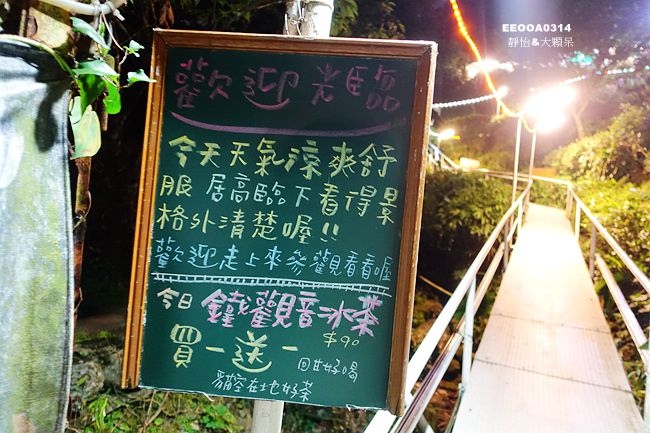 EEOOA0314
靜怡&大顆呆
歡迎光臨
今天天氣涼爽舒
服 居高臨下看得景
格外清楚喔!!
歡迎走上來參觀看看喔
今日 鐵觀音冰茶
$90
買一送一
回甘好喝
貓空在地好茶